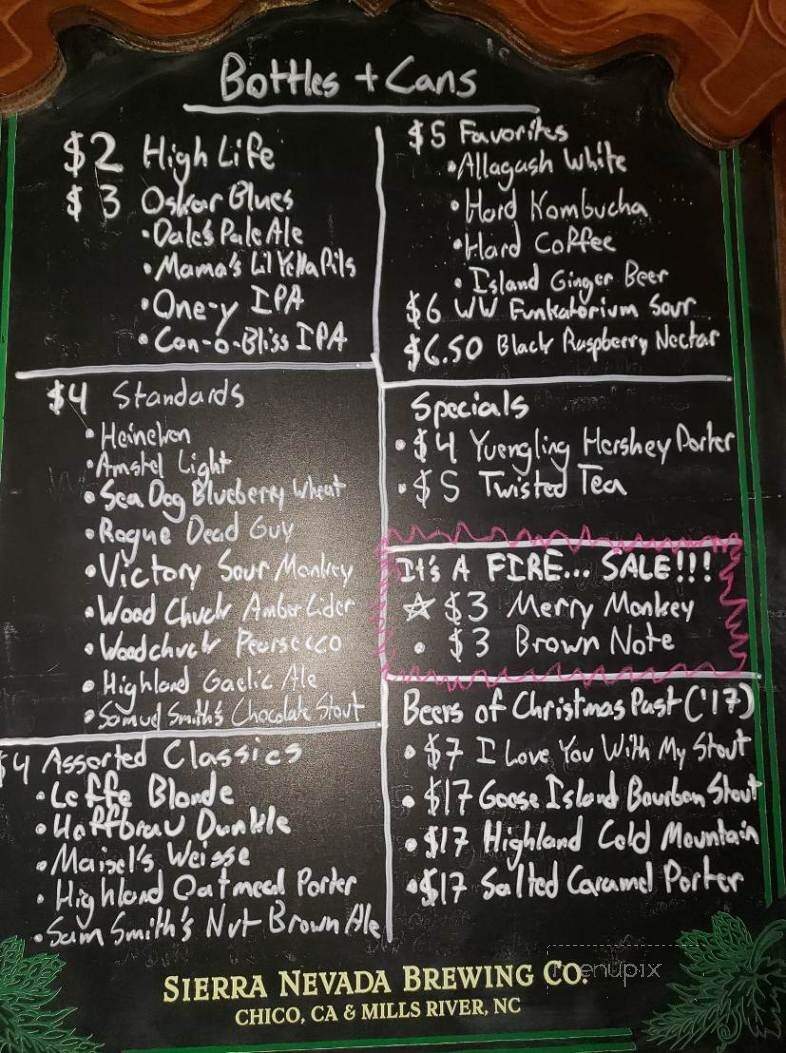 Bottles + Cans
$2 High Life
$3 Oskar Blues
• Dale's Pale Ale
• Mama's Lil Yella Pils
• One-y IPA
• Can-o-Bliss IPA
$4 Standards
• Heineken
• Amstel Light
• Sea Dog Blueberry Wheat
• Rogue Dead Guy
• Victory Sour Monkey
• Wood Chuck Amber Cider
• Woodchuck Pearsecco
• Highland Gaelic Ale
• Samuel Smith's Chocolate Stout
$4 Assorted Classics
• Leffe Blonde
• Hoffbrau Dunkle
• Maisel's Weisse
• Highland Oatmeal Porter
• Sam Smith's Nut Brown Ale
$5 Favorites
• Allagash White
• Hard Kombucha
• Hard Coffee
• Island Ginger Beer
$6 WW Funkatorium Sour
$6.50 Black Raspberry Nectar
Specials
• $4 Yuengling Hershey Porter
• $5 Twisted Tea
It's A FIRE... SALE!!!
☆ $3 Merry Monkey
• $3 Brown Note
Beers of Christmas Past ('17)
• $7 I Love You With My Stout
• $17 Goose Island Bourbon Stout
• $17 Highland Cold Mountain
• $17 Salted Caramel Porter
SIERRA NEVADA BREWING CO.
CHICO, CA & MILLS RIVER, NC
menupix